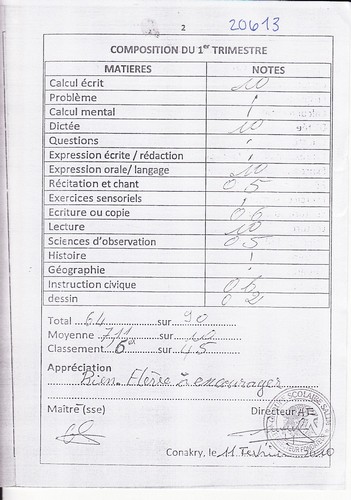 2
20613
COMPOSITION DU 1er TRIMESTRE
MATIERES NOTES
Calcul écrit 10
Problème /
Calcul mental /
Dictée 10
Questions /
Expression écrite / rédaction /
Expression orale/ langage 10
Récitation et chant 05
Exercices sensoriels /
Ecriture ou copie 06
Lecture 10
Sciences d'observation 05
Histoire /
Géographie
Instruction civique 06
dessin 02
Total 64 sur 90
Moyenne 7,11 sur 10
Classement 6e sur 45
Appréciation
Bien. Elève à encourager
Maître (sse) Directeur
Conakry, le 11 Février 2010